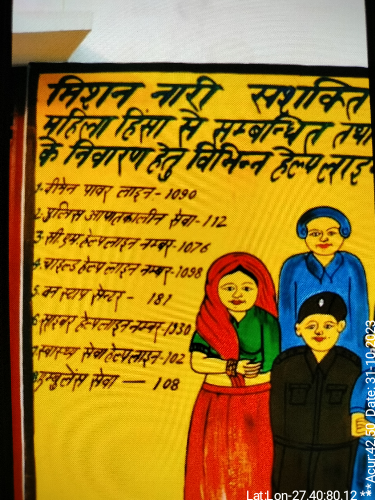 मिशन नारी सशक्ति
महिला हिंसा से सम्बन्धित तथा
के निवारण हेतु विभिन्न हेल्पलाइन
1. वीमेन पावर लाइन - 1090
2. पुलिस आपातकालीन सेवा - 112
3. सी एम हेल्पलाइन नम्बर - 1076
4. चाइल्ड हेल्प लाइन नम्बर - 1098
5. वन स्टाप सेन्टर - 181
6 साइबर हेल्पलाइन नम्बर - 1930
7 स्वास्थ्य सेवा हेल्पलाइन - 102
8 एम्बुलेंस सेवा — 108
Lat:Lon-27.40:80.12 ***Acur:42.50 Date: 31-10-2023